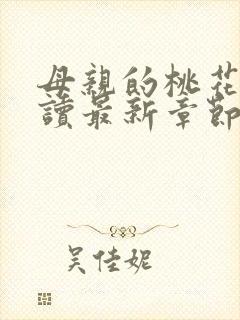 母親的桃花
讀最新章節
吴佳妮